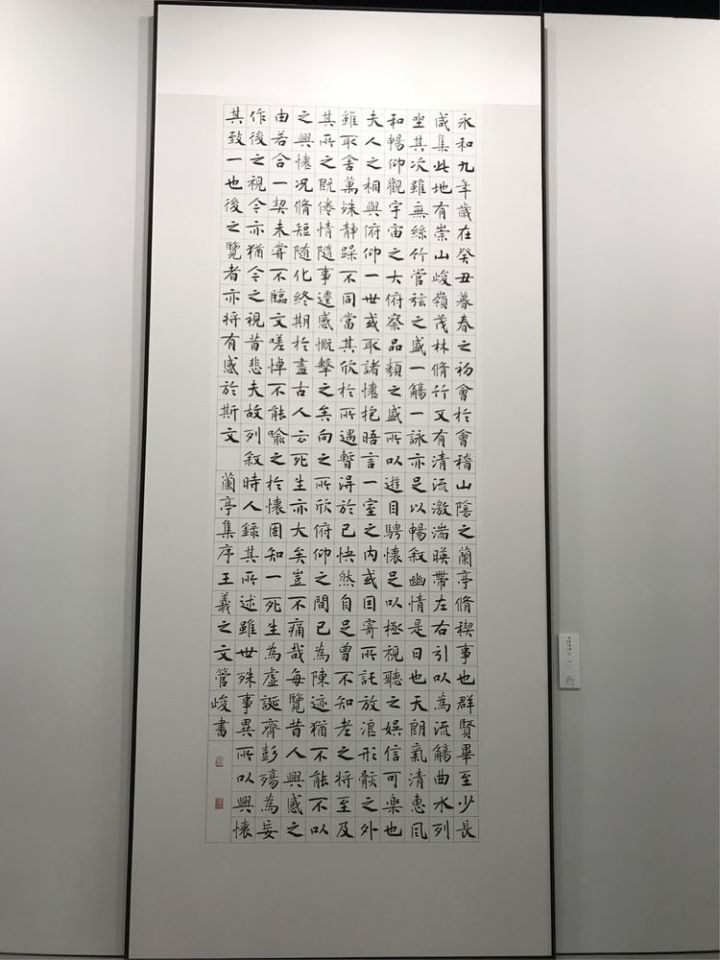 永和九年歲在癸丑暮春之初會於會稽山陰之蘭亭脩稧事也群賢畢至少長
咸集此地有崇山峻嶺茂林脩竹又有清流激湍暎帶左右引以為流觴曲水列
坐其次雖無絲竹管弦之盛一觴一詠亦足以暢叙幽情是日也天朗氣清惠風
和暢仰觀宇宙之大俯察品類之盛所以遊目騁懷足以極視聽之娛信可樂也
夫人之相與俯仰一世或取諸懷抱晤言一室之內或因寄所託放浪形骸之外
雖取舍萬殊靜躁不同當其欣於所遇暫得於己快然自足曾不知老之將至及
其所之既倦情隨事遷感慨繫之矣向之所欣俯仰之間已為陳迹猶不能不以
之興懷況脩短隨化終期於盡古人云死生亦大矣豈不痛哉每覽昔人興感之
由若合一契未嘗不臨文嗟悼不能喻之於懷固知一死生為虛誕齊彭殤為妄
作後之視今亦猶今之視昔悲夫故列叙時人錄其所述雖世殊事異所以興懷
其致一也後之覽者亦將有感於斯文 蘭亭集序王羲之文管峻書